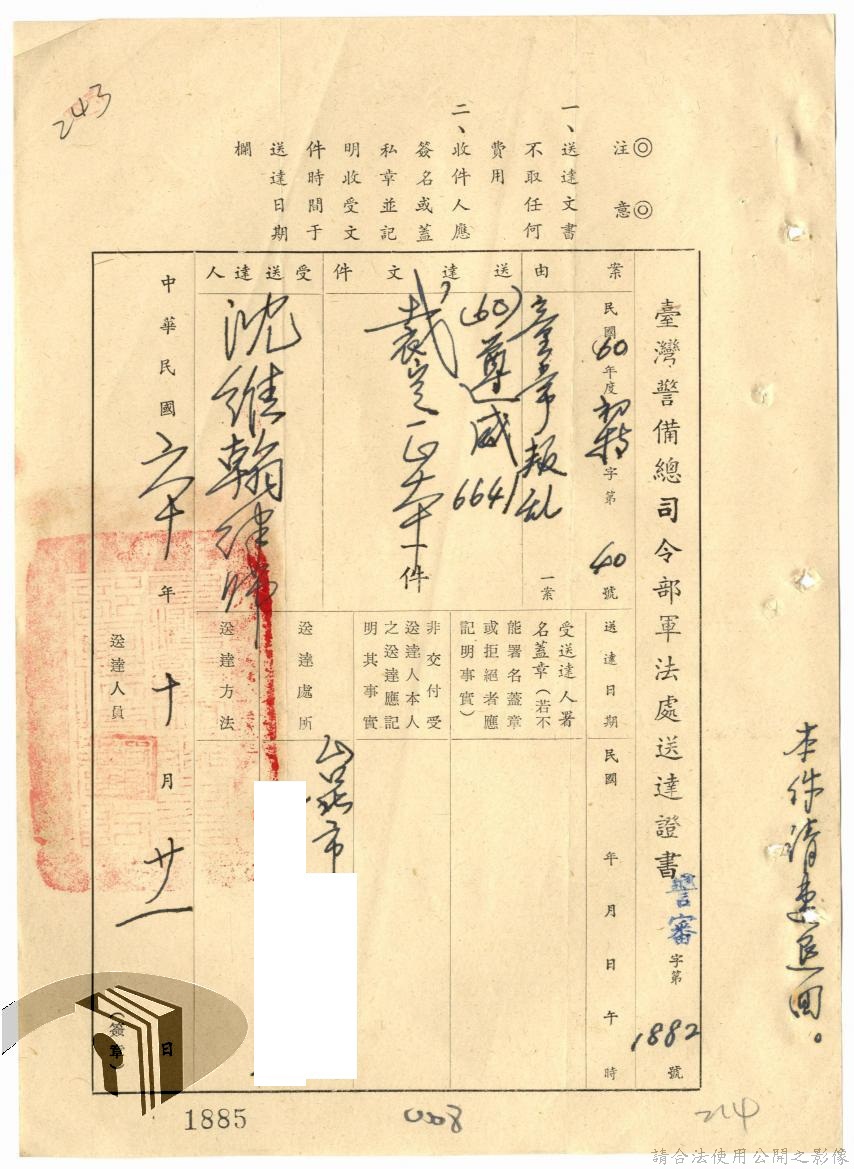 243
◎注意◎
一、送達文書
不取任何
費用
二、收件人應
簽名或蓋
私章並記
明收受文
件時間于
送達日期
欄
臺灣警備總司令部軍法處送達證書
警審字第1882號
案由
民國60年度初特字第40號
叛乱一案
送達文件
(60)蓮威6641
裁定正本一件
受送達人
沈維翰律師
送達日期
民國 年 月 日 午 時
受送達人署
名蓋章(若不
能署名蓋章
或拒絕者應
記明事實)
非交付受
送達人本人
之送達應記
明其事實
送達處所
市
送達方法
中華民國六十年十月廿一日
送達人員
(簽章)
本件請速退回。
1885
008
214
請合法使用公開之影像